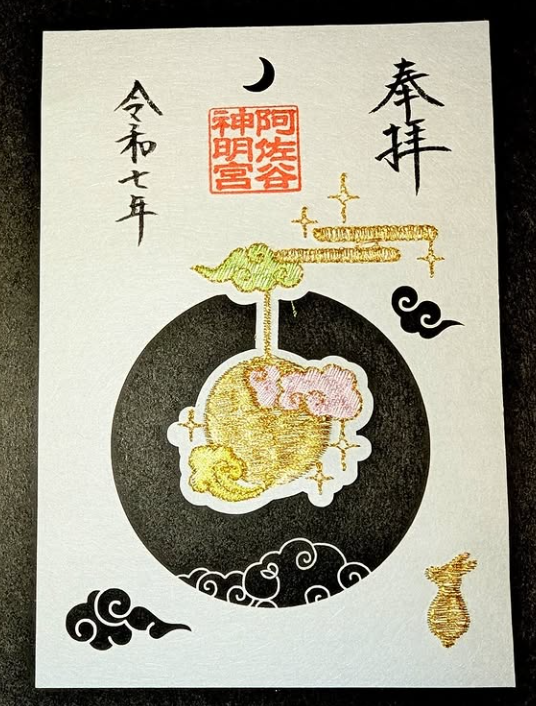 奉拝
阿佐谷
神明宮
令和七年